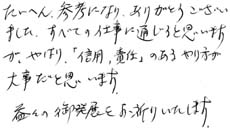 たいへん、参考になり、ありがとうござい
ました。すべての仕事に通じると思います
が、やはり、「信用、責任」のあるやり方が
大事だと思います。
益々の御発展をお祈りいたします。